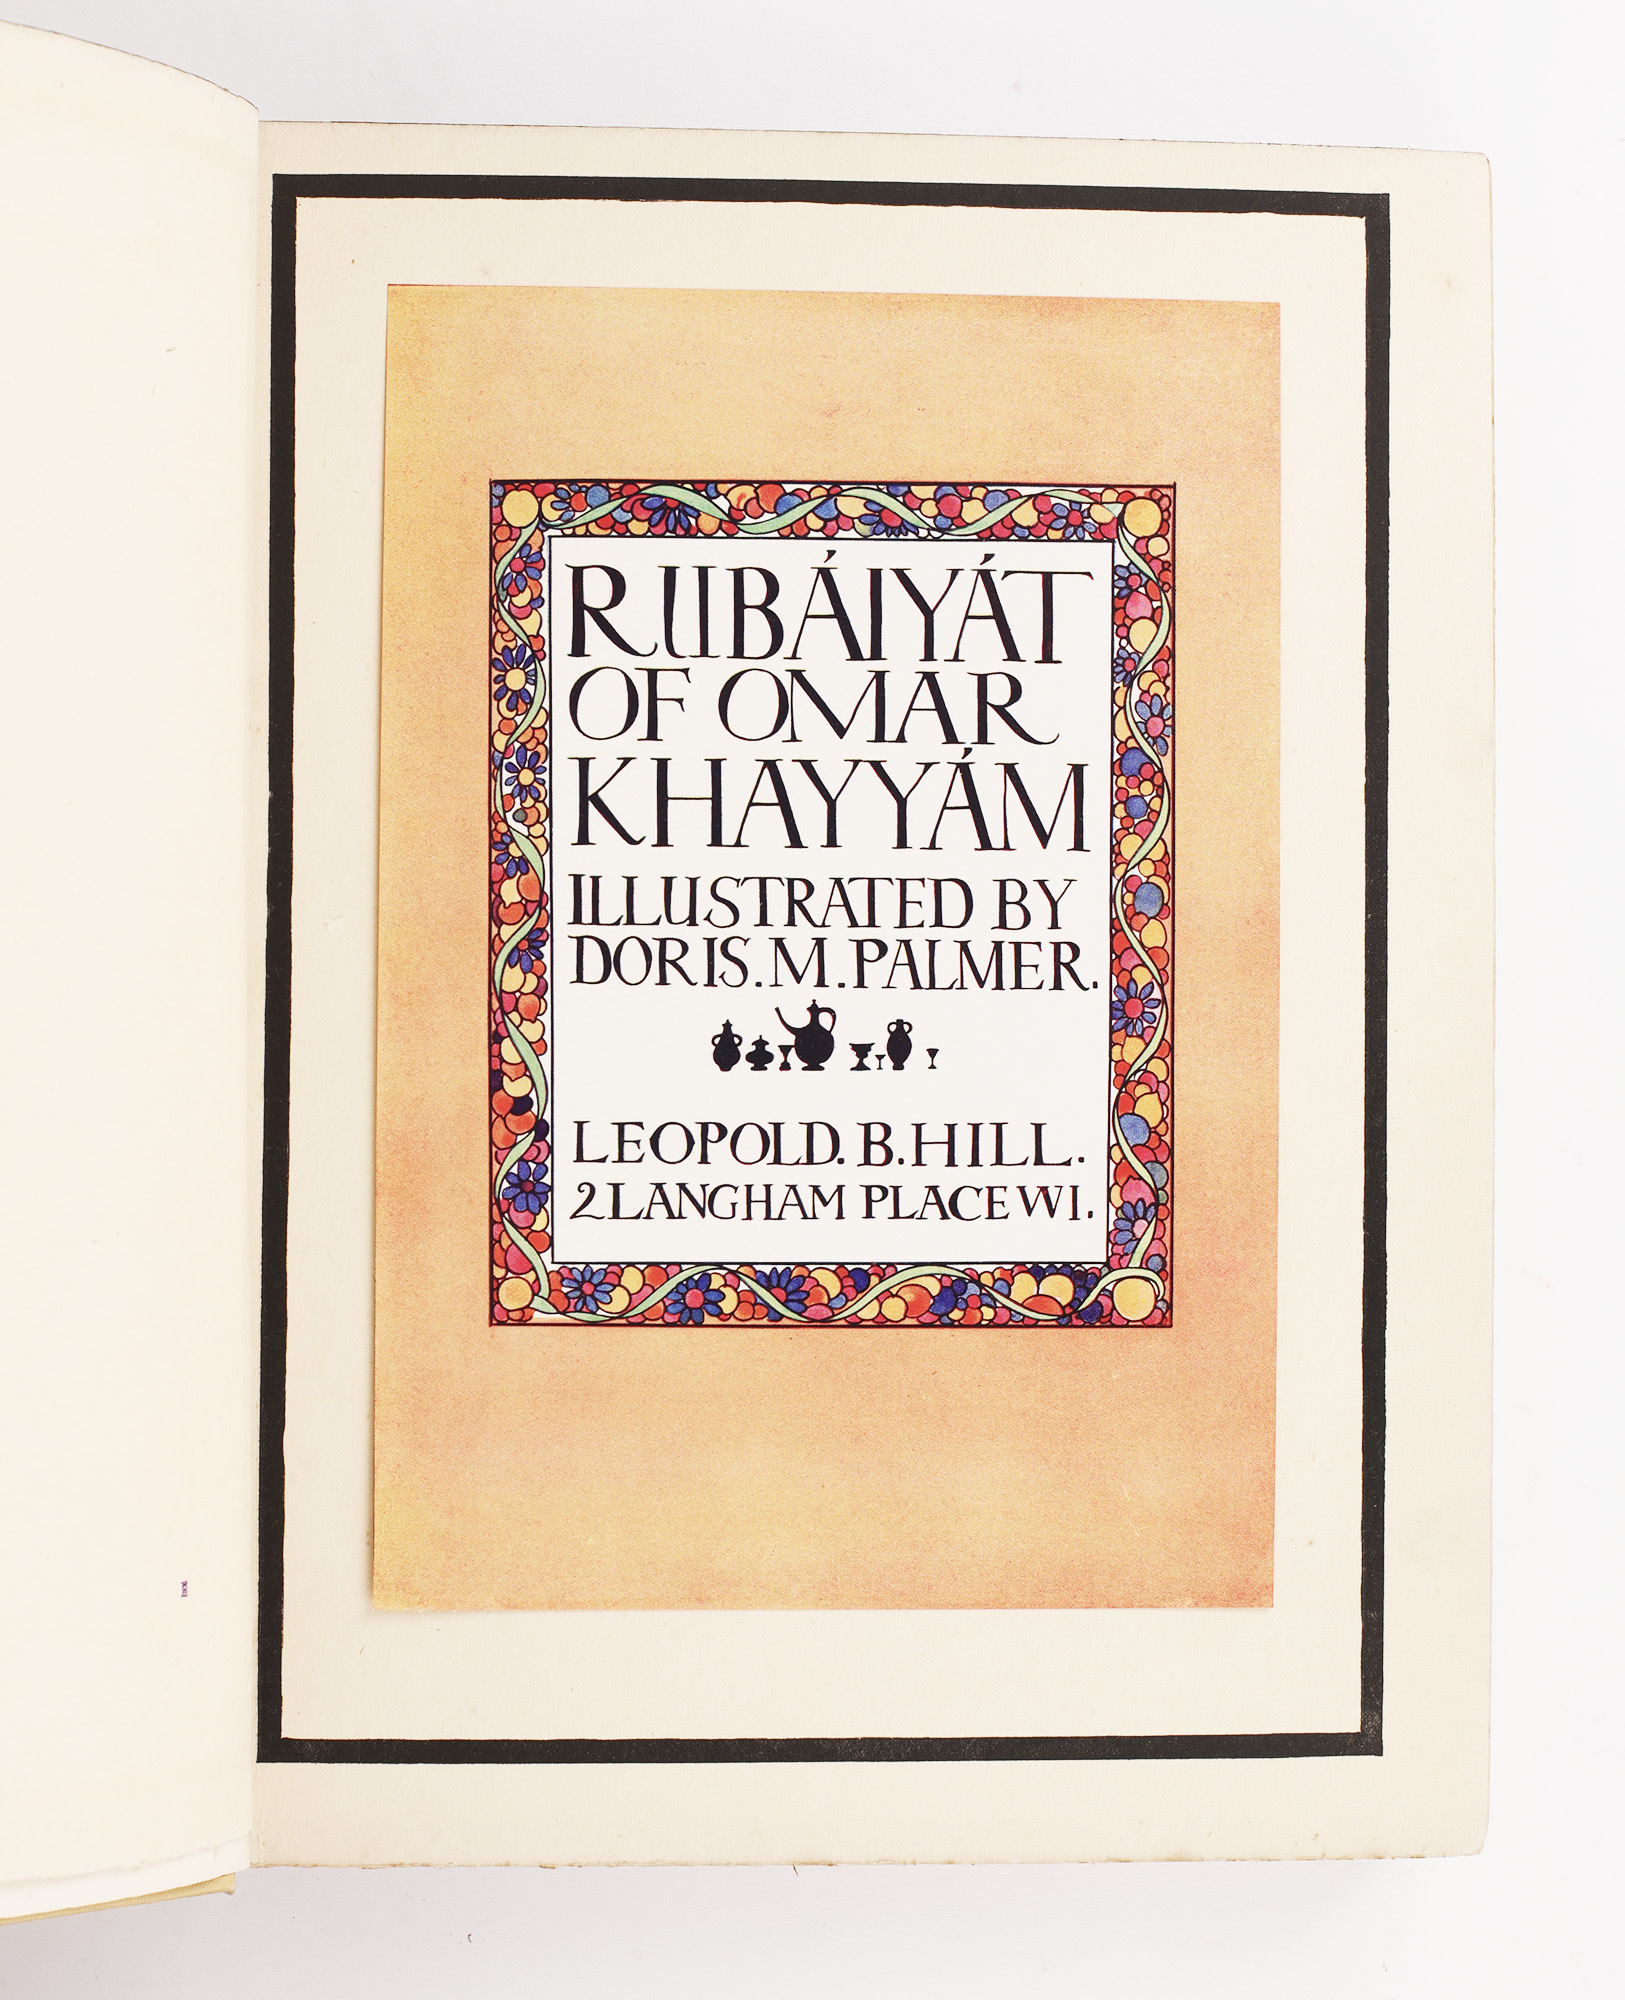 RUBÁIYÁT
OF OMAR
KHAYYÁM
ILLUSTRATED BY
DORIS. M. PALMER.
LEOPOLD. B. HILL.
2 LANGHAM PLACE W1.